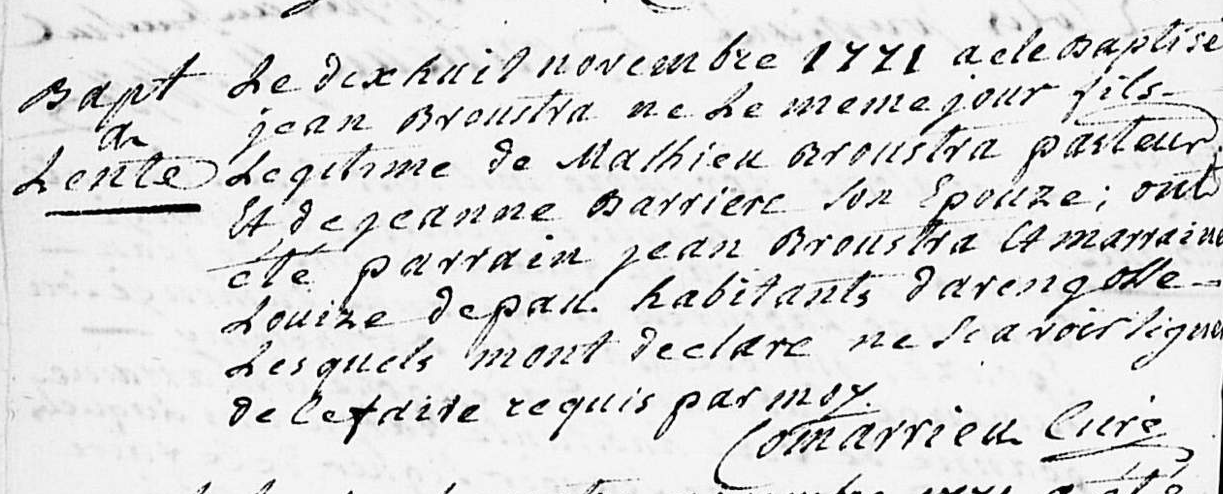 Bapt
de
Lente
Le dixhuit novembre 1771 a ete Baptise
jean Broustra ne Le meme jour fils
Legitime de Mathieu Broustra pasteur
Et de jeanne Barriere son Epouze; ont
ete parrain jean Broustra Et marraine
Louize depau habitants darengosse
Lesquels mont declare ne Scavoir Signer
de Ce faire requis par moy.
Comarrieu Curé
1771 a été